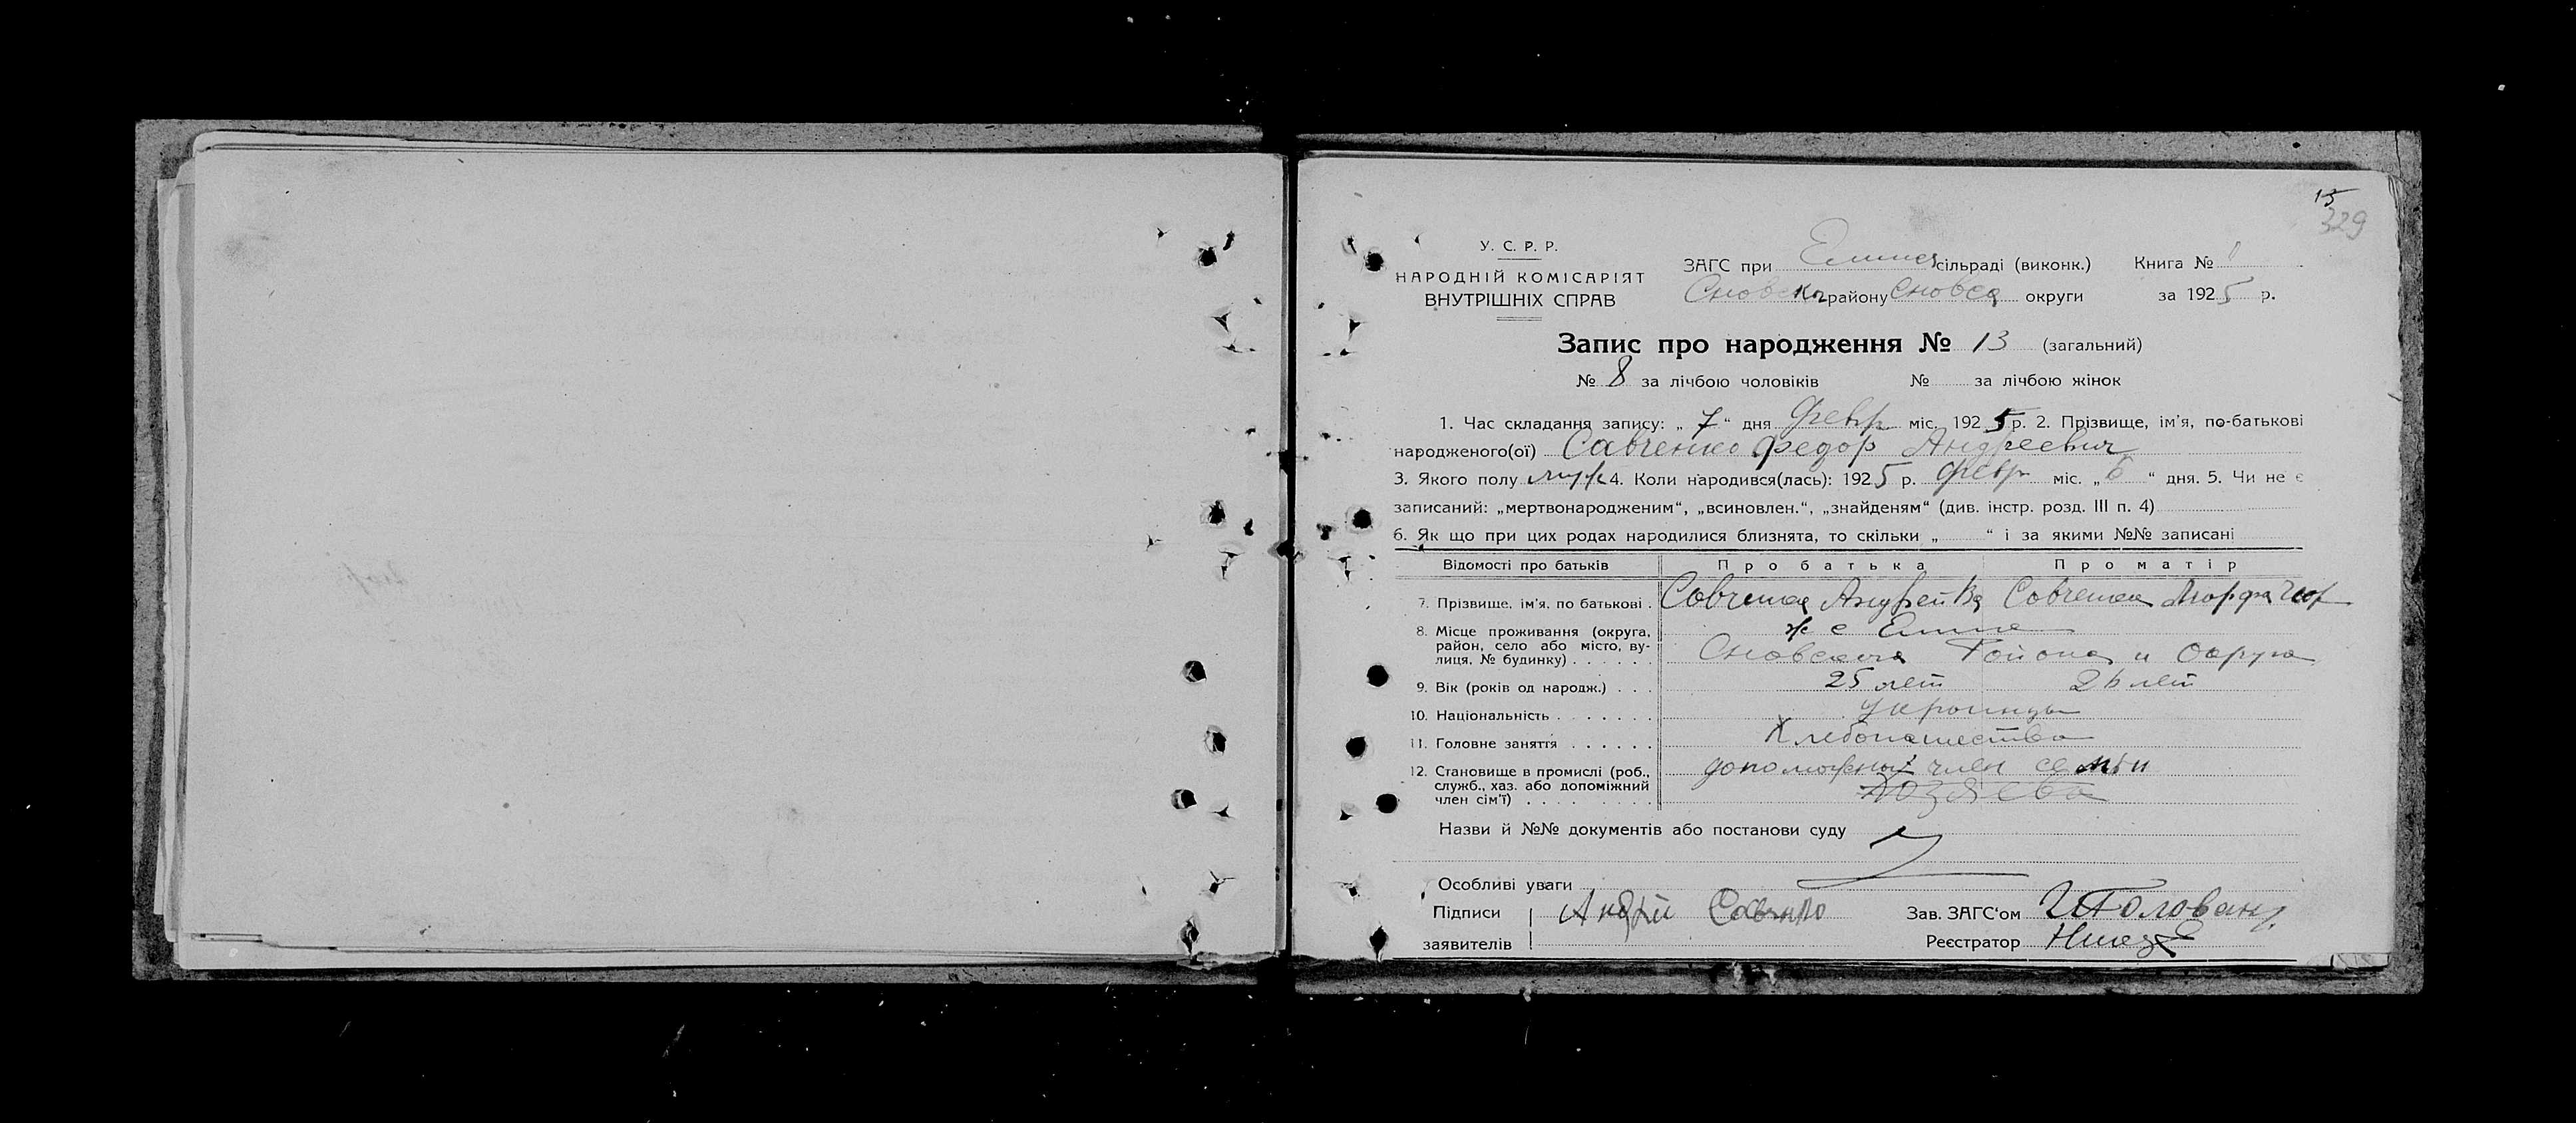 15
329
У. С. Р. Р.
НАРОДНІЙ КОМІСАРІЯТ
ВНУТРІШНІХ СПРАВ
ЗАГС при сільраді (виконк.) Книга № 1
району округи за 1925 р.
Запис про народження № 13 (загальний)
№ 8 за лічбою чоловіків № за лічбою жінок
1. Час складання запису: „ 7 “ дня февр міс. 1925 р. 2. Прізвище, ім'я, по-батькові
народженого(ої) Савченко Федор Андреевич
3. Якого полу муж 4. Коли народився(лась): 1925 р. февр міс. „ 6 “ дня. 5. Чи не є
записаний: „мертвонародженим“, „всиновлен.“, „знайденям“ (див. інстр. розд. III п. 4)
6. Як що при цих родах народилися близнята, то скільки „ “ і за якими №№ записані
Відомості про батьків Про батька Про матір
7. Прізвище, ім'я, по батькові . Савченко Андрей Савченко Марфа
8. Місце проживання (округа, ж с
район, село або місто, ву- Района и Округа
лиця, № будинку) . . . . .
9. Вік (років од народж.) . . . 25 лет 26 лет
10. Національність . . . . . . . украинцы
11. Головне заняття . . . . . . Хлебопашество
12. Становище в промислі (роб., допоможный член семьи
служб., хаз. або допоміжний хозяева
член сім'ї) . . . . . . . . .
Назви й №№ документів або постанови суду
Особливі уваги
Підписи Андрій Савченко Зав. ЗАГС'ом Головань
заявителів Реєстратор